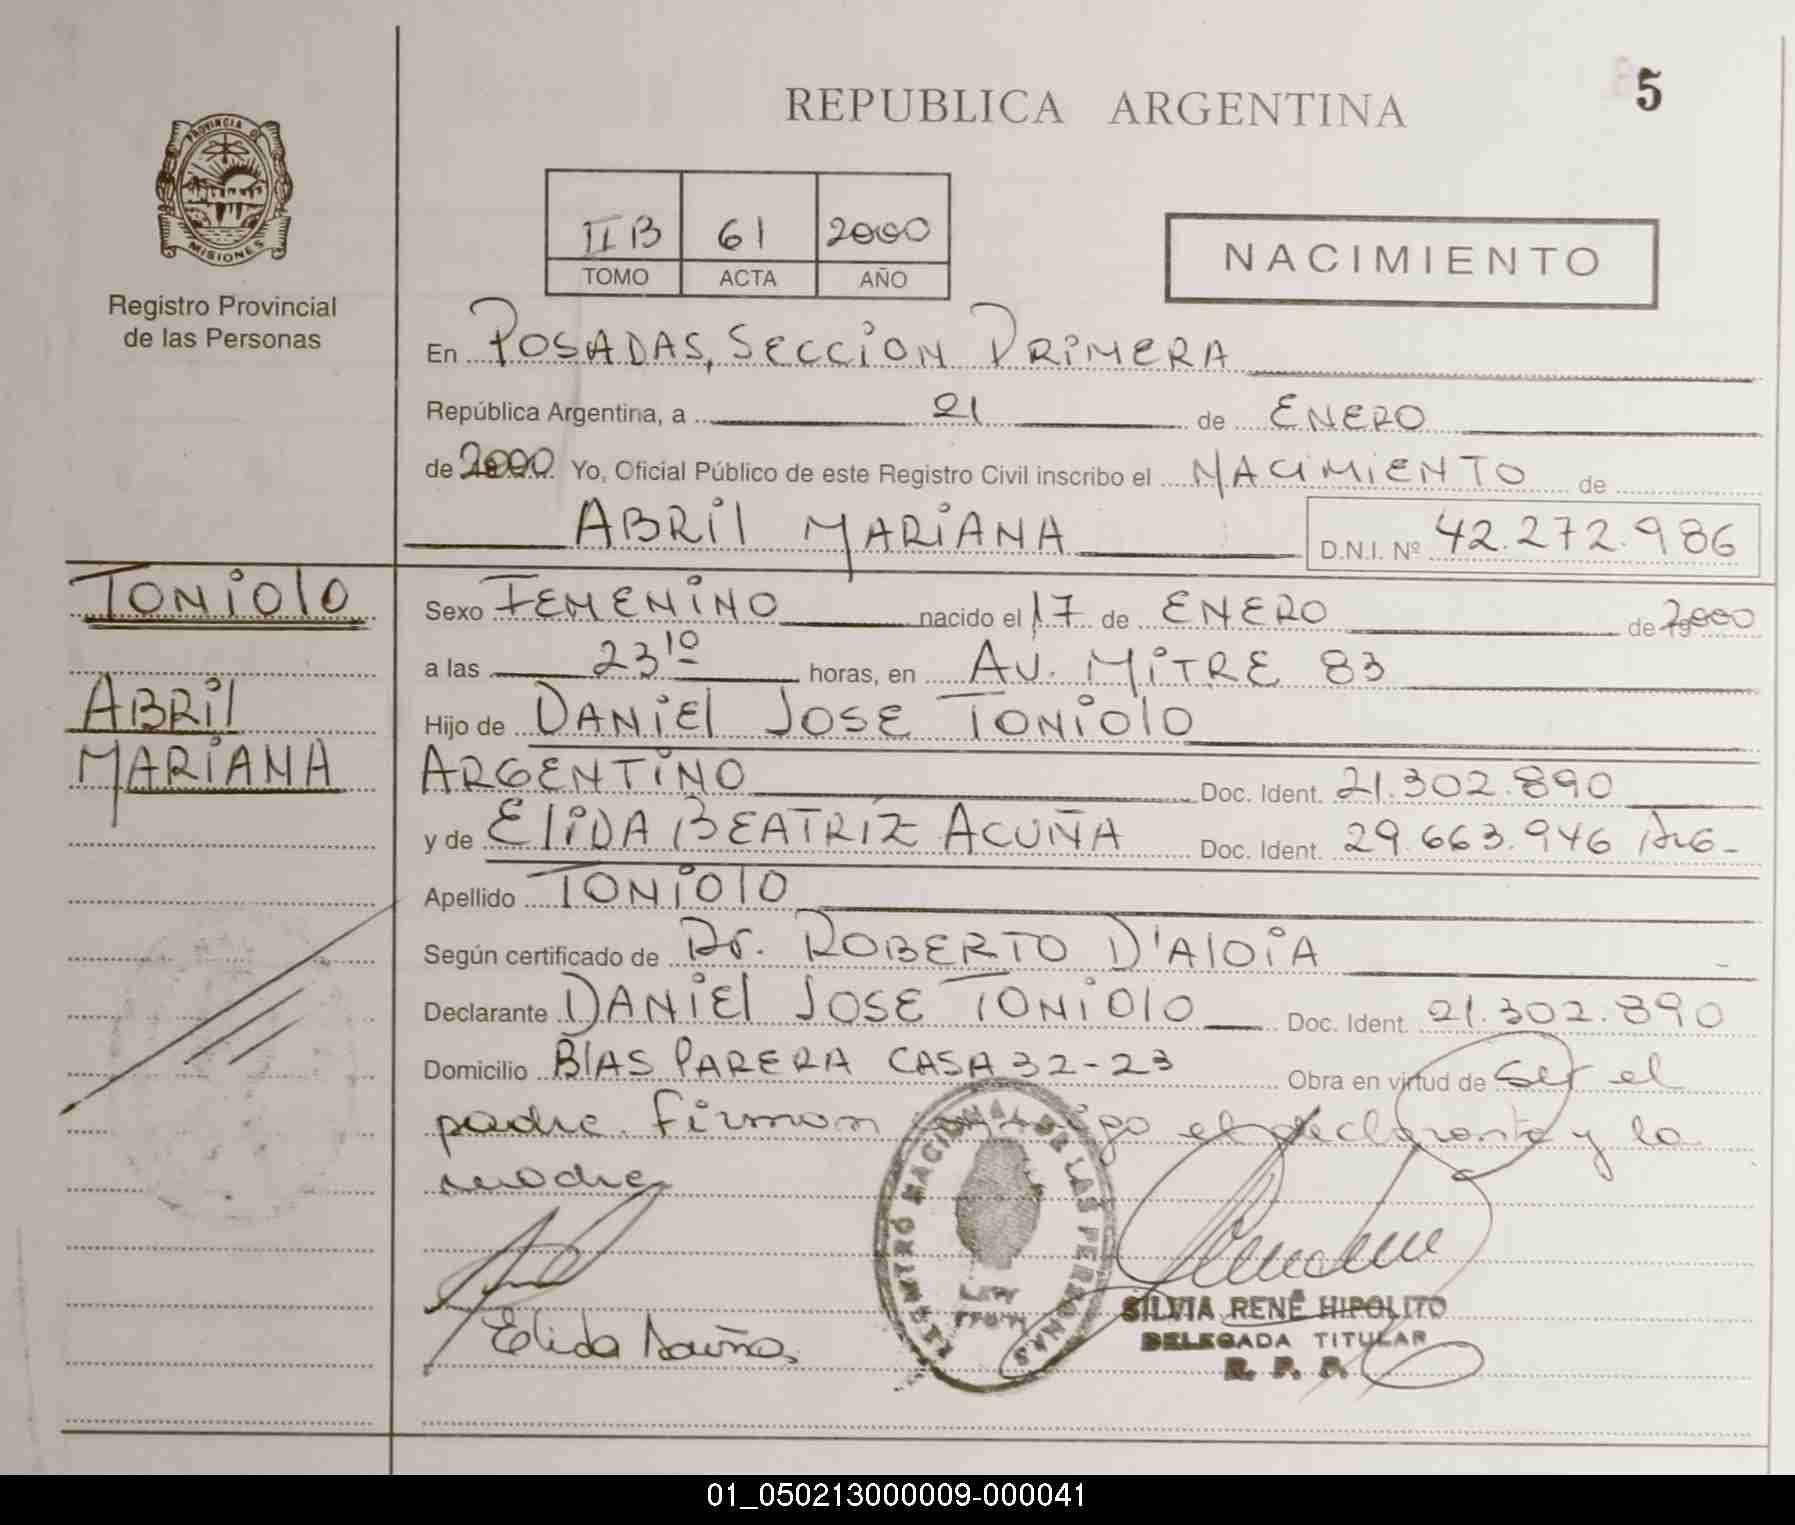 5
REPUBLICA ARGENTINA
PROVINCIA DE
MISIONES
Registro Provincial
de las Personas
II B 61 2000
TOMO ACTA AÑO
NACIMIENTO
En POSADAS, SECCION PRIMERA
República Argentina, a 21 de ENERO
de 2000 Yo, Oficial Público de este Registro Civil inscribo el NACIMIENTO de
ABRIL MARIANA D.N.I. Nº 42.272.986
TONIOLO
ABRIL
MARIANA
Sexo FEMENINO nacido el 17 de ENERO de 2000
a las 23 10 horas, en AV. MITRE 83
Hijo de DANIEL JOSE TONIOLO
ARGENTINO Doc. Ident. 21.302.890
y de ELIDA BEATRIZ ACUÑA Doc. Ident. 29.663.946 ARG-
Apellido TONIOLO
Según certificado de Dr. ROBERTO D'ALOIA
Declarante DANIEL JOSE TONIOLO Doc. Ident. 21.302.890
Domicilio BLAS PARERA CASA 32-23 Obra en virtud de ser el
padre. Firman conmigo el declarante y la
madre
REGISTRO NACIONAL DE LAS PERSONAS
Elida Acuña
SILVIA RENÉ HIPOLITO
DELEGADA TITULAR
R. P. P.
01_050213000009-000041